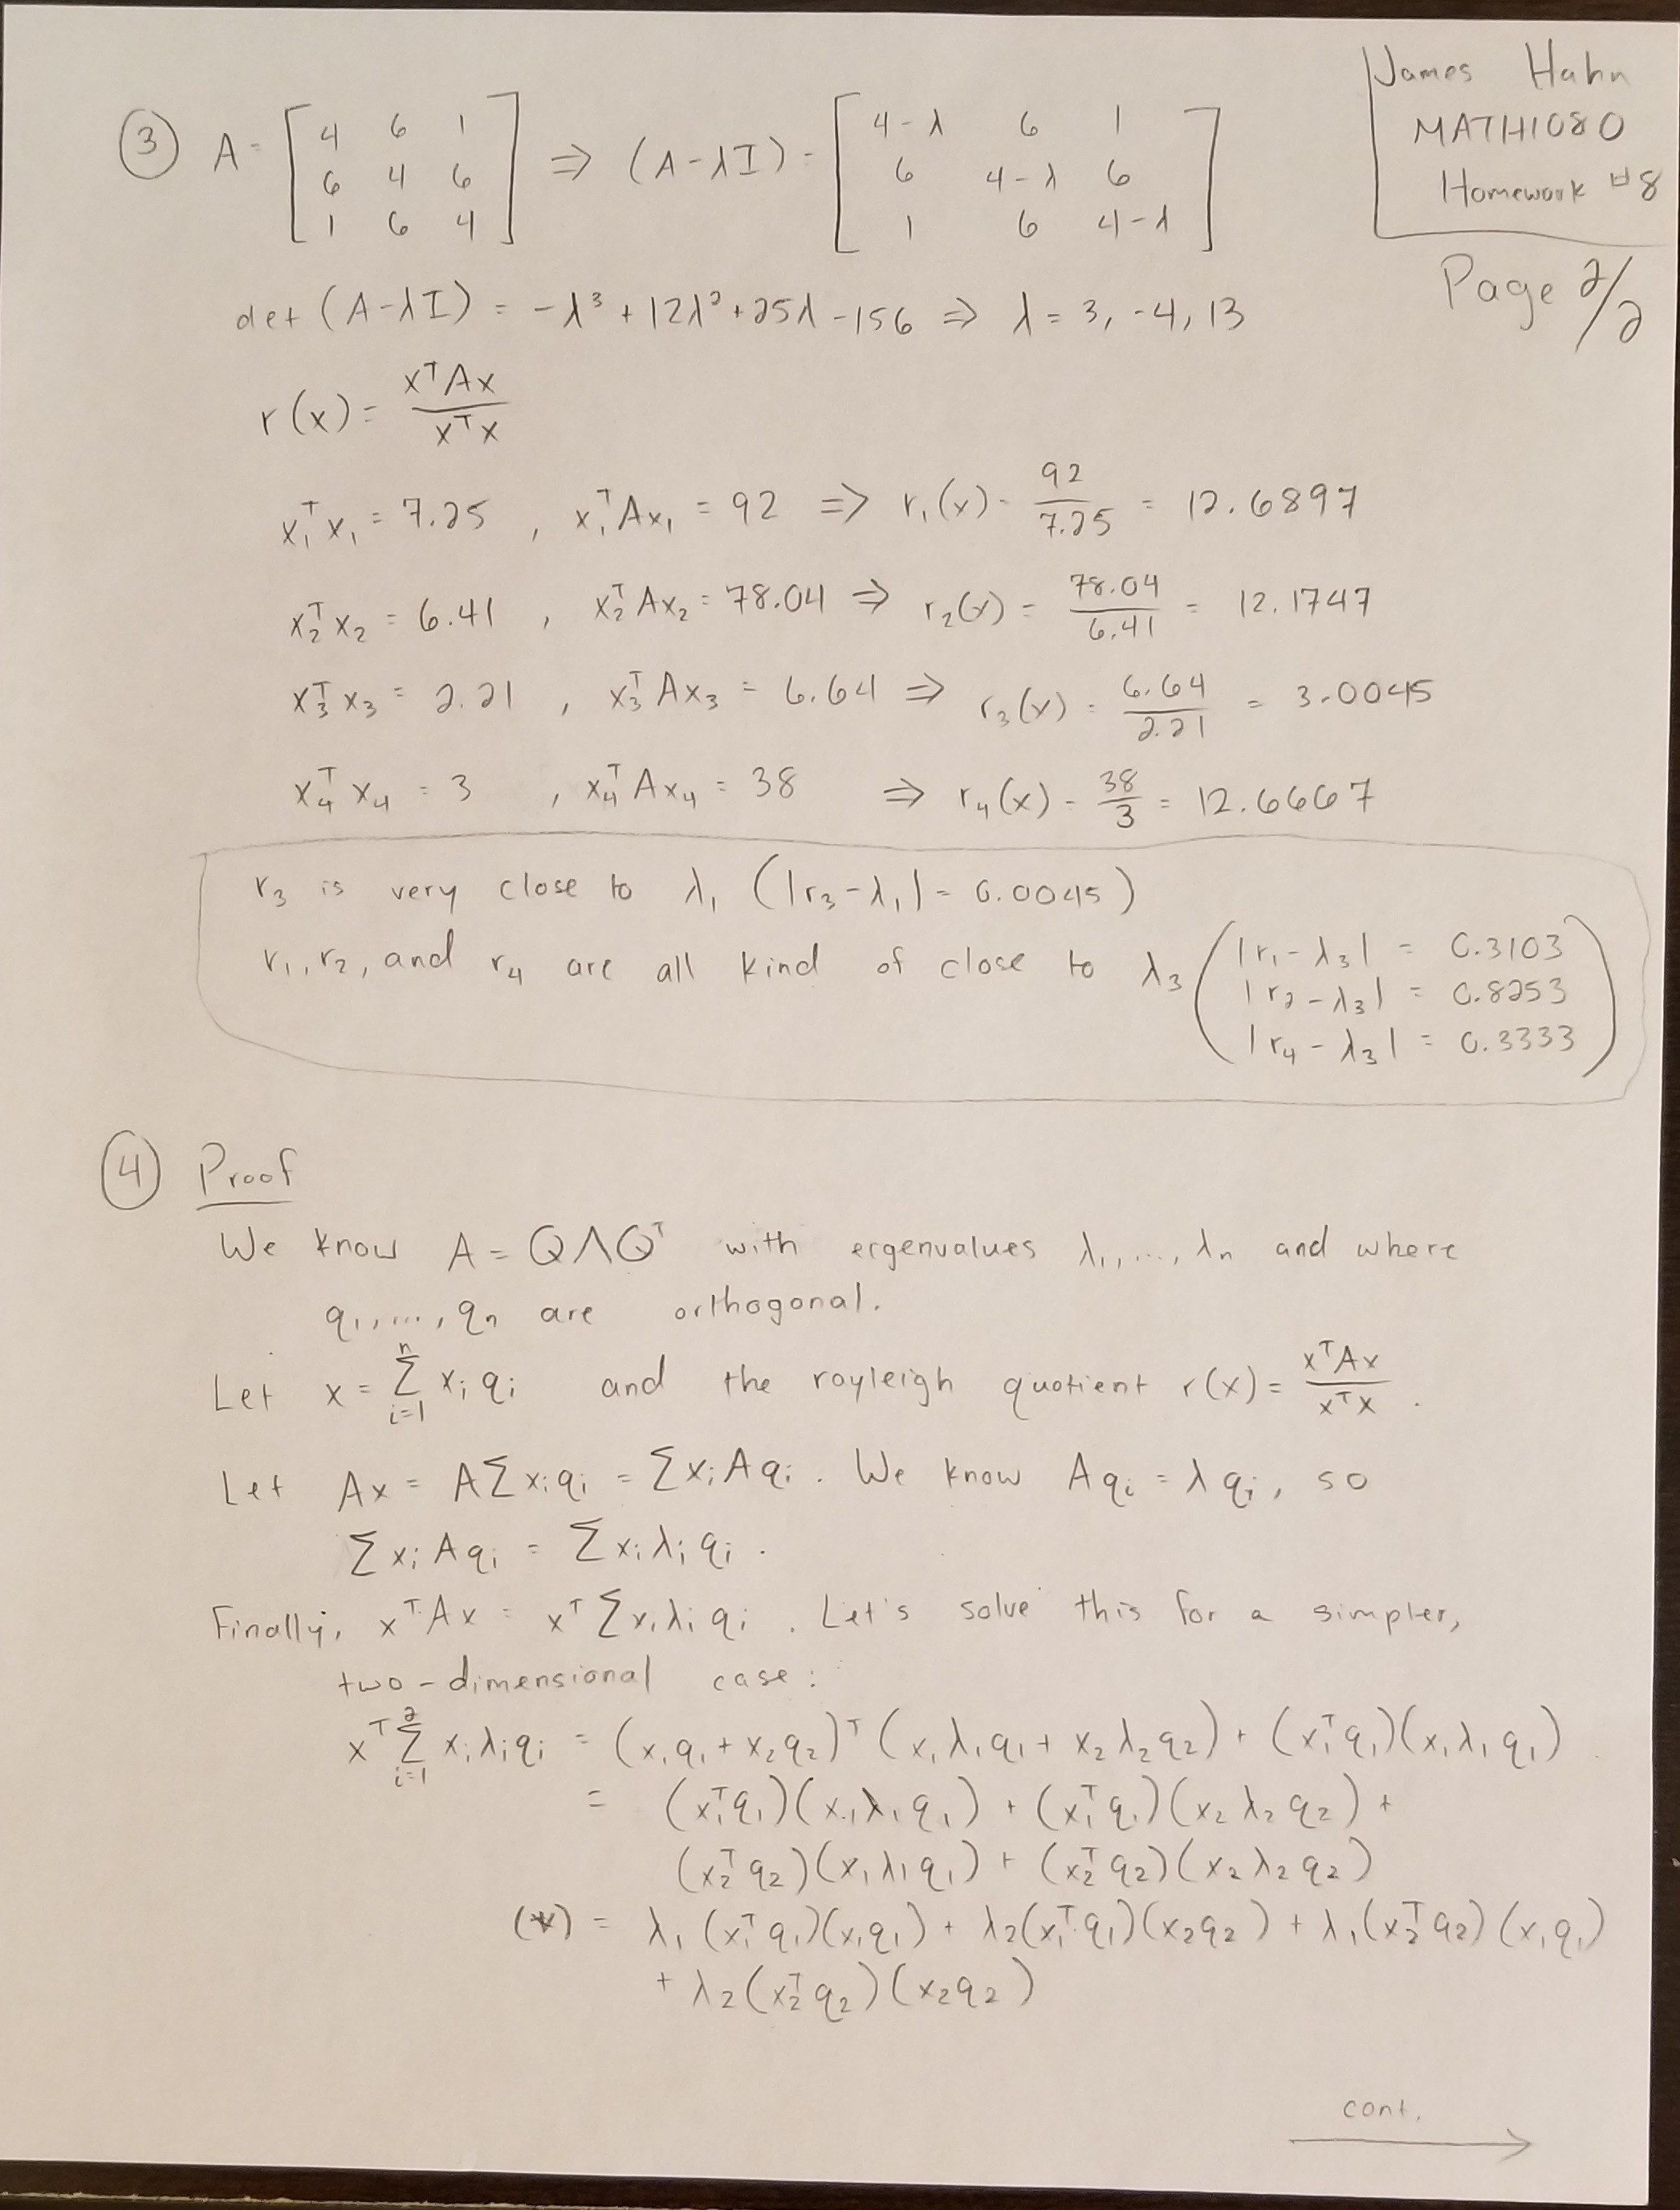 James Hahn
MATH1080
Homework #8
Page 2/2
③ A = [4 6 1; 6 4 6; 1 6 4] ⇒ (A-λI) = [4-λ 6 1; 6 4-λ 6; 1 6 4-λ]
det (A-λI) = -λ³ + 12λ² + 25λ - 156 ⇒ λ = 3, -4, 13
r(x) = xᵀAx / xᵀx
x₁ᵀx₁ = 7.25 , x₁ᵀAx₁ = 92 ⇒ r₁(x) = 92/7.25 = 12.6897
x₂ᵀx₂ = 6.41 , x₂ᵀAx₂ = 78.04 ⇒ r₂(x) = 78.04/6.41 = 12.1747
x₃ᵀx₃ = 2.21 , x₃ᵀAx₃ = 6.64 ⇒ r₃(x) = 6.64/2.21 = 3.0045
x₄ᵀx₄ = 3 , x₄ᵀAx₄ = 38 ⇒ r₄(x) = 38/3 = 12.6667
r₃ is very close to λ₁ (|r₃-λ₁| = 0.0045)
r₁, r₂, and r₄ are all kind of close to λ₃ (|r₁-λ₃| = 0.3103
|r₂-λ₃| = 0.8253
|r₄-λ₃| = 0.3333)
④ Proof
We know A = QΛQᵀ with eigenvalues λ₁, ..., λn and where
q₁, ..., qn are orthogonal.
Let x = Σⁿᵢ₌₁ xᵢqᵢ and the rayleigh quotient r(x) = xᵀAx / xᵀx .
Let Ax = AΣxᵢqᵢ = ΣxᵢAqᵢ . We know Aqᵢ = λqᵢ, so
ΣxᵢAqᵢ = Σxᵢλᵢqᵢ .
Finally, xᵀAx = xᵀΣxᵢλᵢqᵢ . Let's solve this for a simpler,
two-dimensional case:
xᵀ Σ²ᵢ₌₁ xᵢλᵢqᵢ = (x₁q₁ + x₂q₂)ᵀ(x₁λ₁q₁ + x₂λ₂q₂) + (x₁ᵀq₁)(x₁λ₁q₁)
= (x₁ᵀq₁)(x₁λ₁q₁) + (x₁ᵀq₁)(x₂λ₂q₂) +
(x₂ᵀq₂)(x₁λ₁q₁) + (x₂ᵀq₂)(x₂λ₂q₂)
(*) = λ₁(x₁ᵀq₁)(x₁q₁) + λ₂(x₁ᵀq₁)(x₂q₂) + λ₁(x₂ᵀq₂)(x₁q₁)
+ λ₂(x₂ᵀq₂)(x₂q₂)
cont. →